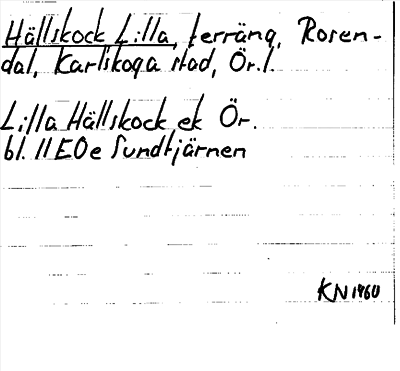 Hällskock Lilla, terräng, Rosen-
dal, Karlskoga stad, Ör. l.
Lilla Hällskock ek Ör.
bl. 11E0e Sundtjärnen
KN 1960